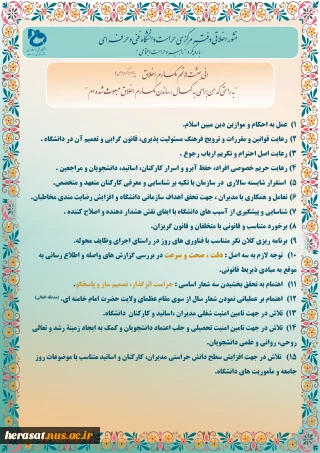 منشور اخلاقی دفتر مرکزی حراست دانشگاه فنی و حرفه ای
انی بعثت لاتمم مکارم اخلاق
"به راستی که من برای به کمال رساندن مکارم اخلاق مبعوث شده ام"
۱) عمل به احکام و موازین دین مبین اسلام.
۲) رعایت قوانین و مقررات و ترویج فرهنگ مسئولیت پذیری، قانون گرایی و تعمیم آن در دانشگاه .
۳) رعایت اصل احترام و تکریم ارباب رجوع .
۴) رعایت حریم خصوصی افراد، حفظ آبرو و اسرار کارکنان، اساتید، دانشجویان و مراجعین .
۵) استقرار شایسته سالاری در سازمان با تکیه بر شناسایی و معرفی کارکنان متعهد و متخصص.
۶) تعامل و همکاری با مدیران ، جهت تحقق اهداف سازمانی دانشگاه و افزایش رضایت مندی مخاطبان.
۷) شناسایی و پیشگیری از آسیب های دانشگاه با ایفای نقش هشدار دهنده و اصلاح کننده .
۸) برخورد متناسب و قانونی با متخلفان و قانون گریزان.
۹) برنامه ریزی کلان نگر متناسب با فناوری های روز در راستای اجرای وظایف محوله.
۱۰) توجه لازم به سه اصل : دقت ، صحت و سرعت در بررسی گزارش های واصله و اطلاع رسانی به
موقع به مبادی ذیربط قانونی.
۱۱) اهتمام به تحقق بخشیدن سه شعار اساسی : حراست اثرگذار، تصمیم ساز و پاسخگو.
۱۲) اهتمام بر عملیاتی نمودن شعار سال از سوی مقام عظمای ولایت حضرت امام خامنه ای. (مدظله العالی)
۱۳) تلاش در جهت تامین امنیت شغلی مدیران ،اساتید و کارکنان دانشگاه.
۱۴) تلاش در جهت تامین امنیت تحصیلی و جلب اعتماد دانشجویان و کمک به ایجاد زمینهٔ رشد و تعالی
روحی، روانی و علمی دانشجویان.
۱۵) تلاش در جهت افزایش سطح دانش حراستی مدیران، کارکنان و اساتید متناسب با موضوعات روز
جامعه و مأموریت های دانشگاه.
herasat.nus.ac.ir